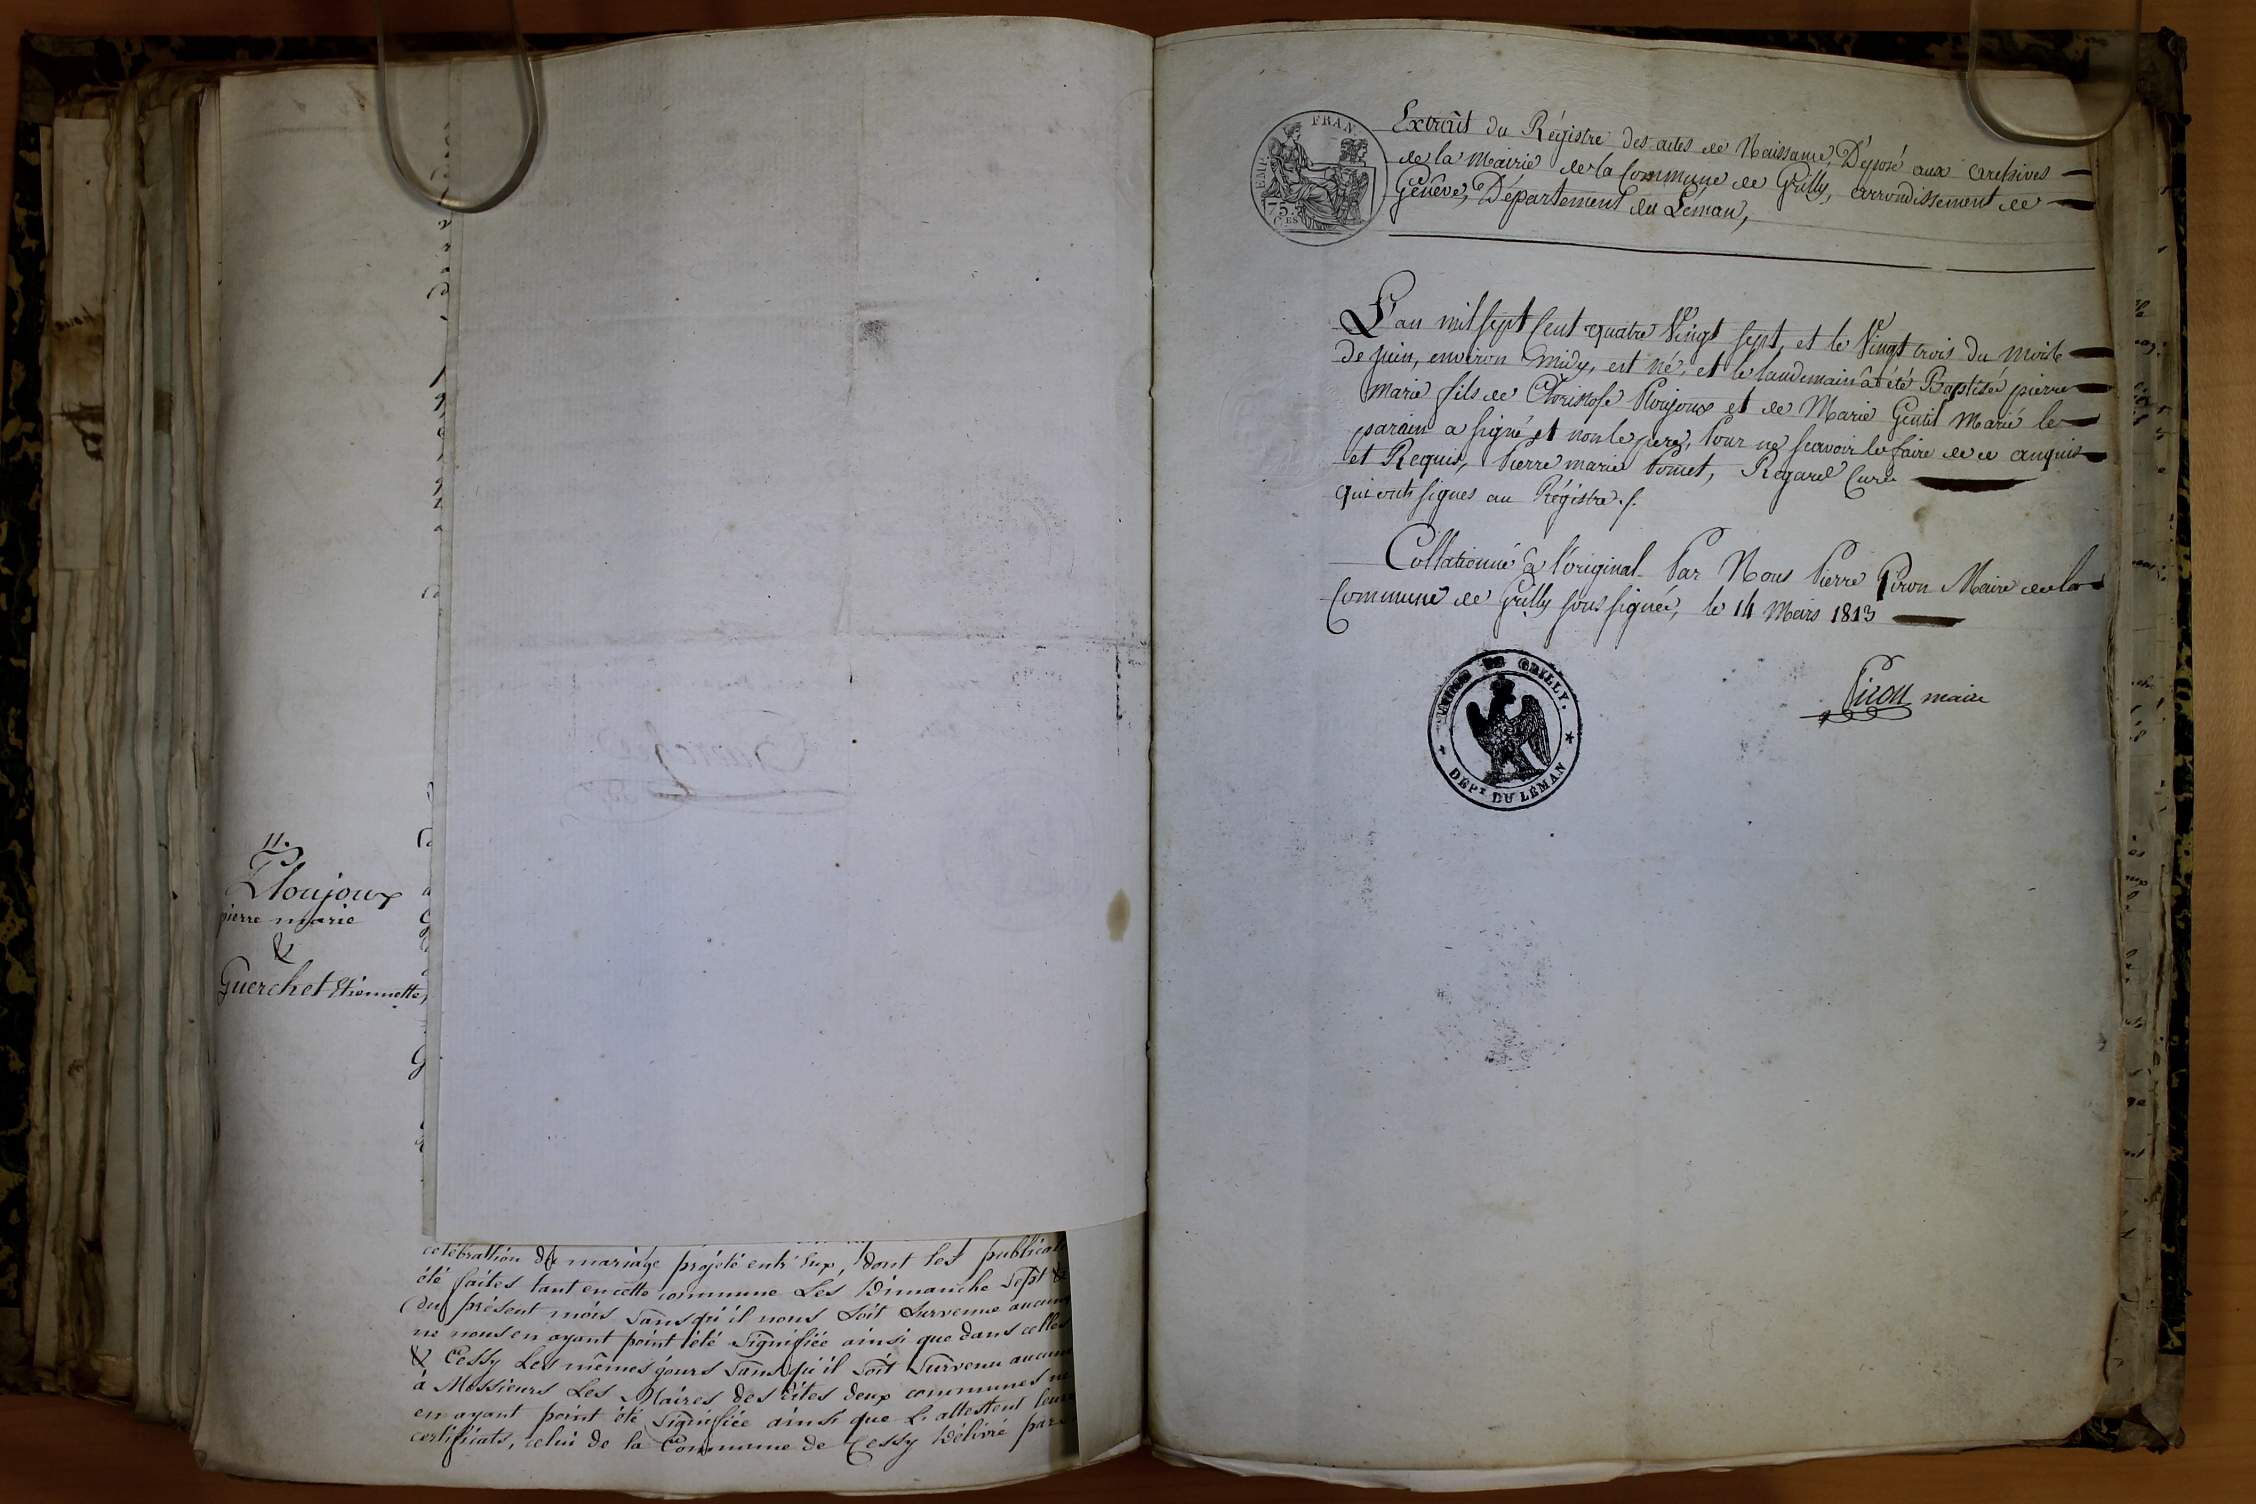 11.
Ploujoux
pierre marie
&
Guerchet Etiennette,
celébration du mariage projété entr'eux, dont les publicat
été faites tant en cette commune Les Dimanche Sept &
du présent mois sans qu'il nous soit survenue aucune
ne nous en ayant point été signifiée ainsi que dans celles
& Cessy Les mêmes jours sans qu'il soit survenu aucune
à Messieurs Les Maires des dites deux communes ne
en ayant point été signifiée ainsi que l'attestent leurs
certificats, celui de la Commune de Cessy délivré par
EMP. FRAN.
75.
CES
Extrait du Régistre des actes de Naissance, Déposé aux archives
de la Mairie de la Commune de Grilly, arrondissement de
Genêve, Département du Léman,
L'an mil sept Cent quatre Vingt sept, et le Vingt trois du mois
de juin, environ midy, est né, et le landemain a été Baptisé pierre
marie fils de Christofe Ploujoux et de Marie Gentil Marié le
parain a signé et non le pere, pour ne scavoir le faire de ce enquis
et Requis, Pierre marie Pomet, Regard Curé
qui ont signes au Régistre ./.
Collationné à l'original Par Nous Pierre Piron Maire de la
Commune de Grilly sous signée, le 14 Mars 1813
Piron maire
MAIRIE DE GRILLY.
DEPT DU LÉMAN